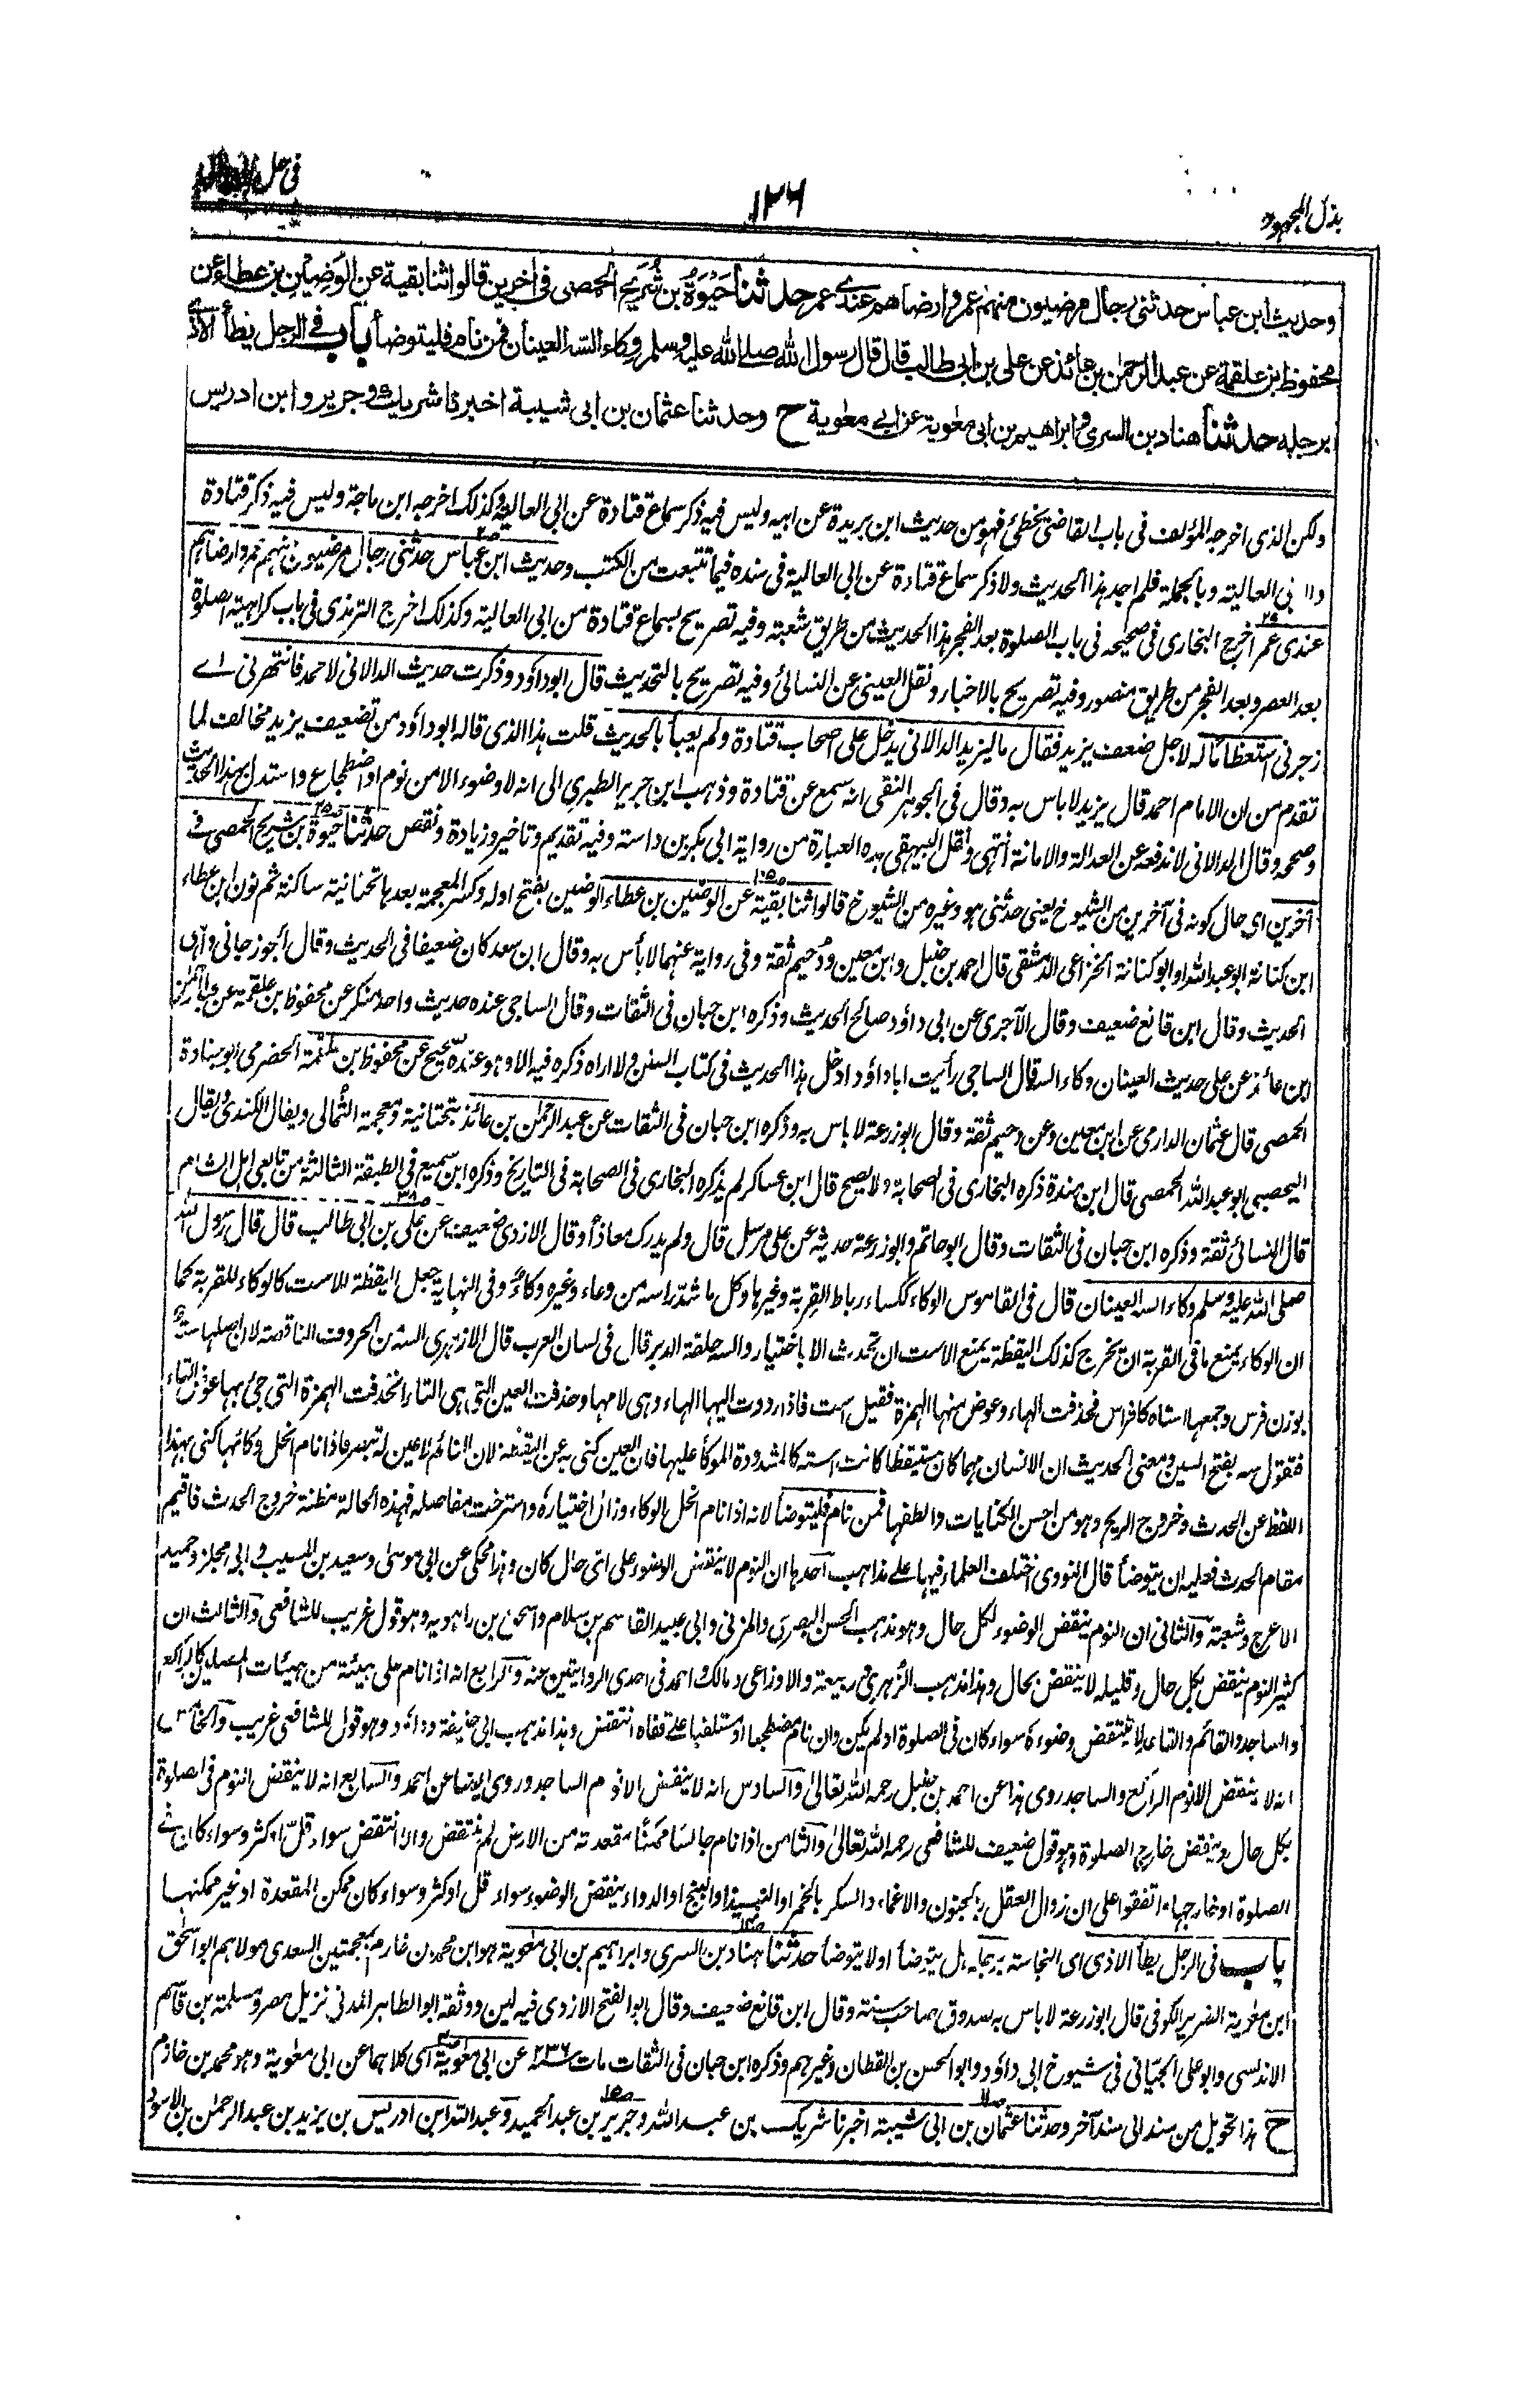 بذل المجهود
١٢٦
فى حل
وحديث ابن عباس حدثنى رجال مرضيون منهم عمر وارضاهم عندى عمر حدثنا حيوة بن شريح الحمصى فى اخرين قالوا ثنا بقية عن الوضين بن عطاء عن
محفوظ بن علقمة عن عبد الرحمن بن عائذ عن على بن ابى طالب قال قال رسول الله صلى الله عليه وسلم وكاء السه العينان فمن نام فليتوضأ باب فى الرجل يطأ الاذى
برجله حدثنا هناد بن السرى وابراهيم بن ابى معٰوية عن ابى معٰوية ح وحدثنا عثمان بن ابى شيبة اخبرنا شريك وجرير وابن ادريس
ولكن الذى اخرجه المؤلف فى باب القاضى يخطئ فهو من حديث ابن بريدة عن ابيه وليس فيه ذكر سماع قتادة عن ابى العالية وكذلك اخرجه ابن ماجة وليس فيه ذكر قتادة
وابى العالية وبالجملة فلم اجد هذا الحديث ولا ذكر سماع قتادة عن ابى العالية فى سنده فيما تتبعت من الكتب وحديث ابن عباس حدثنى رجال مرضيون منهم عمر وارضاهم
عندى عمر اخرج البخارى فى صحيحه فى باب الصلوة بعد الفجر هذا الحديث من طريق شعبة وفيه تصريح بسماع قتادة من ابى العالية وكذلك اخرج الترمذى فى باب كراهية الصلوة
بعد العصر وبعد الفجر من طريق منصور وفيه تصريح بالاخبار ونقل العينى عن النسائى وفيه تصريح بالتحديث قال ابوداؤد وذكرت حديث الدالانى لاحمد فانتهرنى اے
زجرنى استعظاما له لاجل ضعف يزيد فقال ما ليزيد الدالانى يدخل على اصحاب قتادة ولم يعبأ بالحديث قلت هذا الذى قاله ابوداؤد من تضعيف يزيد مخالف لما
تقدم من ان الامام احمد قال يزيد لا باس به وقال فى الجوهر النقى انه سمع عن قتادة وذهب ابن جرير الطبرى الى انه لا وضوء الا من نوم او اضطجاع واستدل بهذا الحديث
وصححه وقال الدالانى لا ندفعه عن العدالة والامانة انتهى ونقل البيهقى هذه العبارة من رواية ابى بكر بن داسة وفيه تقديم وتاخير وزيادة ونقص حدثنا حيوة بن شريح الحمصى فى
آخرين اى حال كونه فى آخرين من الشيوخ يعنى حدثنى هو وغيره من الشيوخ قالوا ثنا بقية عن الوضين بن عطاء الوضين بفتح اوله وكسر المعجمة بعدها تحتانية ساكنة ثم نون ابن عطاء
ابن كنانة ابوعبد الله او ابو كنانة الخزاعى الدمشقى قال احمد بن حنبل وابن معين ودحيم ثقة وفى رواية عنهما لا بأس به وقال ابن سعد كان ضعيفا فى الحديث وقال الجوزجانى واهى
الحديث وقال ابن قانع ضعيف وقال الآجرى عن ابى داؤد صالح الحديث وذكره ابن حبان فى الثقات وقال الساجى عنده حديث واحد منكر عن محفوظ بن علقمة عن عبد الرحمن
ابن عائذ عن على حديث العينان وكاء السه قال الساجى رأيت ابا داؤد ادخل هذا الحديث فى كتاب السنن ولا اراه ذكره فيه الا وهو عنده صحيح عن محفوظ بن علقمة الحضرمى ابو جنادة
الحمصى قال عثمان الدارمى عن ابن معين وعن دحيم ثقة وقال ابوزرعة لا باس به وذكره ابن حبان فى الثقات عن عبد الرحمٰن بن عائذ بتحتانية ومعجمة الثمالى ويقال الكندى ويقال
اليحصبى ابوعبد الله الحمصى قال ابن مندة ذكره البخارى فى الصحابة ولا يصح قال ابن عساكر لم يذكره البخارى فى الصحابة فى التاريخ وذكره ابن سميع فى الطبقة الثالثة من تابعى اهل الشام
قال النسائى ثقة وذكره ابن حبان فى الثقات وقال ابوحاتم وابوزرعة حديثه عن على مرسل قال ولم يدرك معاذا وقال الازدى ضعيف عن على بن ابى طالب قال قال رسول الله
صلى الله عليه وسلم وكاء السه العينان قال فى القاموس الوكاء ككساء رباط القربة وغيرها وكل ما شد رأسه من وعاء وغيره وكاء وفى النهاية جعل اليقظة للاست كالوكاء للقربة كما
ان الوكاء يمنع ما فى القربة ان يخرج كذلك اليقظة يمنع الاست ان تحدث الا باختيار والسه حلقة الدبر قال فى لسان العرب قال الازهرى السه من الحروف الناقصة لان اصلها سته
بوزن فرس وجمعها استاه كافراس فحذفت الهاء وعوض منها الهمزة فقيل است فاذا رددت اليها الهاء وهى لامها وحذفت العين التى هى التاء انحذفت الهمزة التى جئ بها عوض الهاء
فتقول سه بفتح السين ومعنى الحديث ان الانسان مهما كان مستيقظا كانت استه كالمشدودة الموكأ عليها فان العين كنى به عن اليقظة لان النائم لا عين له تبصر فاذا نام انحل وكائها كنى بهذا
اللفظ عن الحدث وخروج الريح وهو من احسن الكنايات والطفها فمن نام فليتوضأ لانه اذا نام انحل الوكاء وزال اختياره واسترخت مفاصله فهذه الحالة مظنة خروج الحدث فاقيم
مقام الحدث فعليه ان يتوضأ قال النووى اختلف العلماء فيها على مذاهب احدها ان النوم لا ينقض الوضوء على اى حال كان وهذا محكى عن ابى موسى وسعيد بن المسيب وابى مجلز وحميد
الاعرج وشعبة والثانى ان النوم ينقض الوضوء بكل حال وهو مذهب الحسن البصرى والمزنى وابى عبيد القاسم بن سلام واسحق بن راهويه وهو قول غريب للشافعى والثالث ان
كثير النوم ينقض بكل حال وقليله لا ينقض بحال وهذا مذهب الزهرى وربيعة والاوزاعى ومالك واحمد فى احدى الروايتين عنه والرابع انه اذا نام على هيئة من هيئات المصلين كالراكع
والساجد والقائم والقاعد لا ينتقض وضوءه سواء كان فى الصلوة او لم يكن وان نام مضطجعا او مستلقيا على قفاه انتقض وهذا مذهب ابى حنيفة وداؤد وهو قول للشافعى غريب والخامس
انه لا ينقض الا نوم الراكع والساجد روى هذا عن احمد بن حنبل رحمه الله تعالىٰ والسادس انه لا ينقض الا نوم الساجد وروى ايضا عن احمد والسابع انه لا ينقض النوم فى الصلوة
بكل حال وينقض خارج الصلوة وهو قول ضعيف للشافعى رحمه الله تعالىٰ والثامن اذا نام جالسا ممكنا مقعدته من الارض لم ينتقض والا انتقض سواء قل او كثر وسواء كان فى
الصلوة او خارجها واتفقوا على ان زوال العقل بالجنون والاغماء والسكر بالخمر او النبيذ او البنج او الدواء ينقض الوضوء سواء قل او كثر وسواء كان ممكن المقعدة او غير ممكنها
باب فى الرجل يطأ الاذى اى النجاسة برجله هل يتوضأ اولا يتوضأ حدثنا هناد بن السرى وابراهيم بن ابى معٰوية هو ابن محمد بن خازم بمعجمتين السعدى مولاهم ابو اسحٰق
ابن معٰوية الضرير الكوفى قال ابوزرعة لا باس به صدوق صاحب سنة وقال ابن قانع ضعيف وقال ابو الفتح الازدى فيه لين ووثقه ابو الطاهر المدنى نزيل مصر ومسلمة بن قاسم
الاندلسى وابو على الجيانى فى شيوخ ابى داؤد وابو الحسن بن القطان وغيرهم وذكره ابن حبان فى الثقات مات سنة ٢٣٦ عن ابى معٰوية اى كلاهما عن ابى معٰوية وهو محمد بن خازم
ح هذا تحويل من سند الى سند آخر وحدثنا عثمان بن ابى شيبة اخبرنا شريك بن عبد الله وجرير بن عبد الحميد وعبد الله ابن ادريس بن يزيد بن عبد الرحمٰن بن الاسود